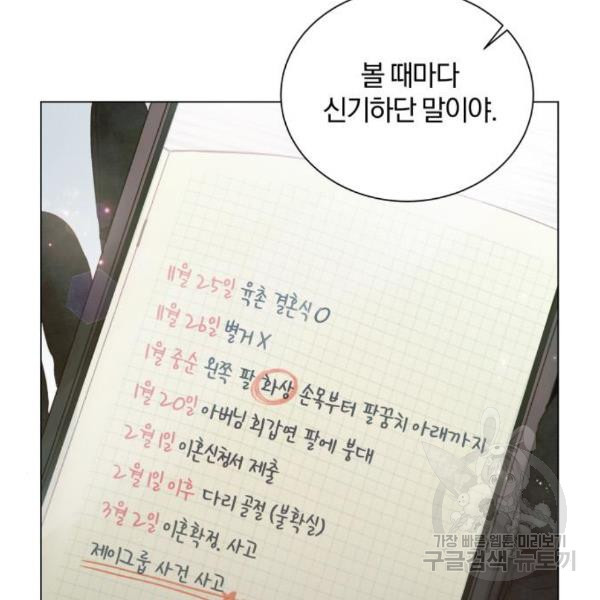 볼 때마다
신기하단 말이야.
11월 25일 육촌 결혼식 O
11월 26일 별거 X
1월 중순 왼쪽 팔 화상 손목부터 팔꿈치 아래까지
1월 20일 아버님 회갑연 팔에 붕대
2월 1일 이혼신청서 제출
2월 1일 이후 다리 골절 (불확실)
3월 2일 이혼확정. 사고
제이그룹 사건 사고
가장 빠른 웹툰 미리보기
구글검색 뉴토끼